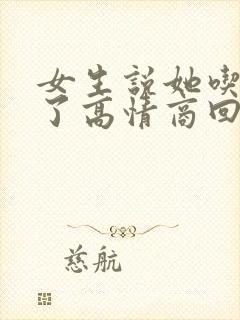 女生說她喫
了高情商回
慈航